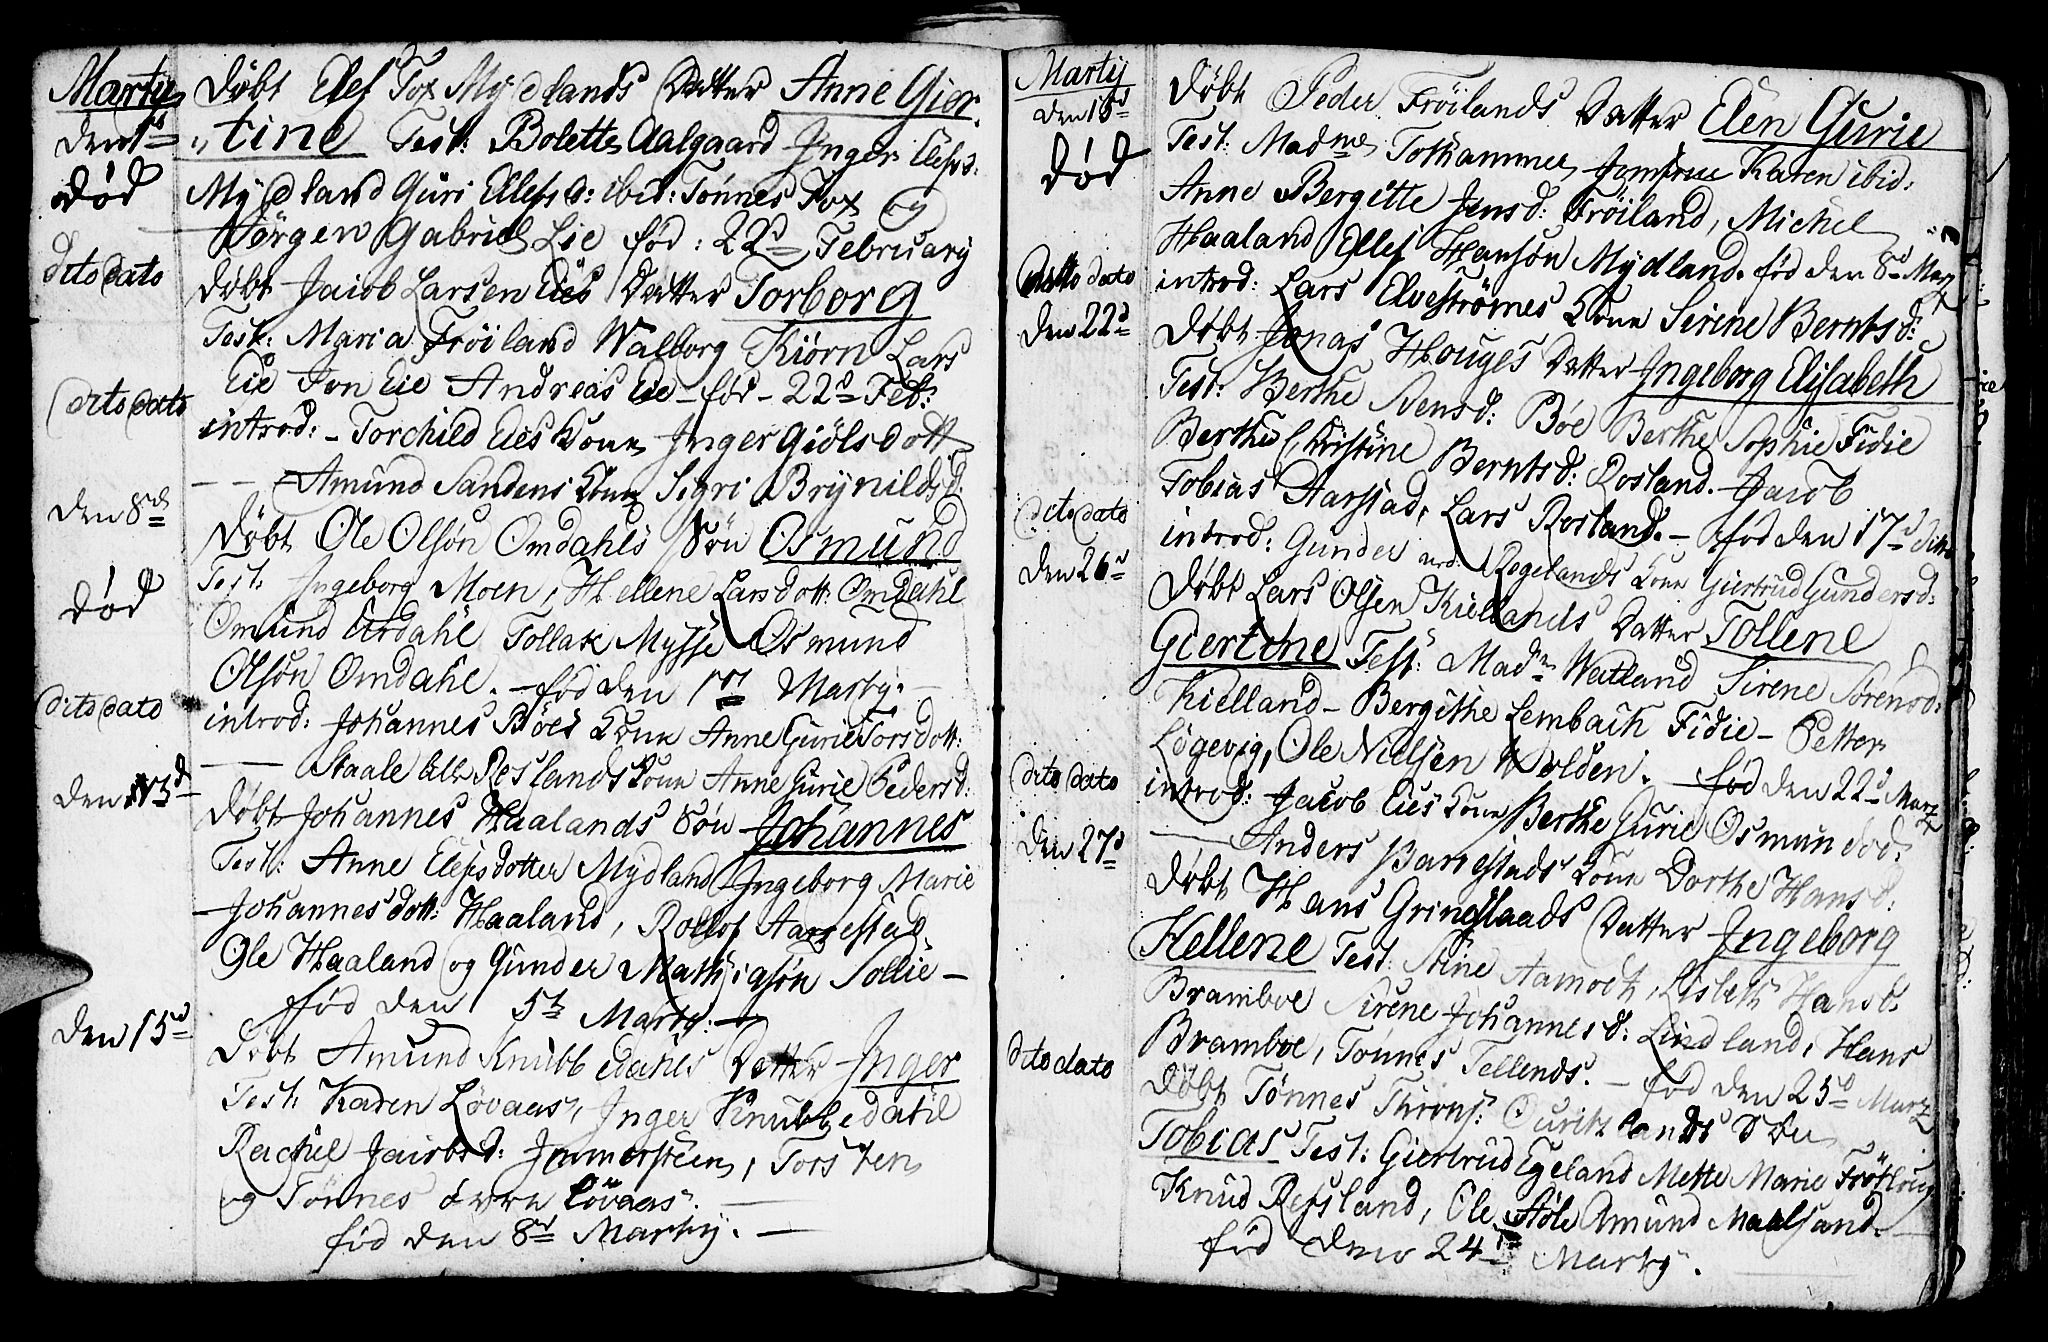 Martij
den 1ste Døbt Elef Fox Mydlands Datter Anne Gier-
død „tine Test: Bolette Aalgaard Inger Elefsd:
Mydland Guri Ellefsd: ibid: Tønnes Fox og
Jørgen Gabriel Lie fød: 22d Februarij
dito dato Døbt Jacob Larsen Eies Datter Torborg
Test: Maria Frøiland Walborg Kiørn Lars
Eie Jon Eie Andreas Eie – fød – 22d Feb:
dito dato introd: – Torchild Eies Kone Inger Giølsdott
– – Amund Sandens Kone Sigri Brynildsd
den 8d Døbt Ole Olsøn Omdahls Søn Osmund
Test: Ingeborg Moen, Hellene Larsdott: Omdahl
død Omund Urdahl Tollak Mysse Osmund
Olsøn Omdahl. – fød den 1st Martij. –
dito dato introd: Johannes Bøes Kone Anne Gurie Torsdott:
— Staale Reslands Kone Anne Gurie Pedersd:
den 13d Døbt Johannes Haalands Søn Johannes
Test: Anne Elefsdotter Mydland Ingeborg Marie
Johannesdott: Haaland, Rollof Aarrestad
Ole Haaland og Gunder Mathiasøn Sollie –
fød den 5te Martij: –
den 15d Døbt Amund Knubbedahls Datter Inger
Test: Karen Løvaas, Inger Knubbedahl
Rachel Jacobsd: Immersteen, Torsten
og Tønnes Løvaas. —
fød den 8de Martij. —
Martij
den 18d Døbt Peder Frøilands Datter Elen Gurie
død Test: Madme Tothammer Jomfrue Karen ibid:
Anne Bergitte Jensd: Frøiland, Michel
Haaland Ellef Hansøn Mydland. fød den 8d Marz
ditto dato introd: Lars Elvestrømes Kone Sirene Berntsd:
den 22d Døbt Jonas Houges Datter Ingeborg Elisabeth
Test: Berthe Svensd: Bøe Berthe Sophie Fidie
Berthe Christine Berntsd: Rosland. Jacob
Tobias Aarstad, Lars Rosland. – fød den 17d ditto
dito dato introd: Gunder Regelands Kone Giertrud Gundersd:
den 26d Døbt Lars Olsen Kiellands Datter Tollene
Giertine Test: Madm Watland Sirene Sørensd:
Kielland – Bergithe Lembach Fidie – Petter
Løgevig, Ole Nielsen Wolden. – fød den 22d Marz
dito dato introd: Jacob Eies Kone Berthe Gurie Osmundsd:
— Anders Barrestads Kone Dorthe Hansd:
den 27d Døbt Hans Grindlaads Datter Ingeborg
Hellene Test: Stine Aamodt, Lisbeth Hansd:
Bramboe Sirene Johannesd: Lindland, Hans
Bramboe, Tønnes Tellends. – fød den 25d Marz
dito dato Døbt Tønnes Thronsø: Søn
Tobias Test: Giertrud Egeland Mette Marie Frøtloug
Knud Refsland, Ole Støle Amund Maalsand. –
fød den 24de Martij.